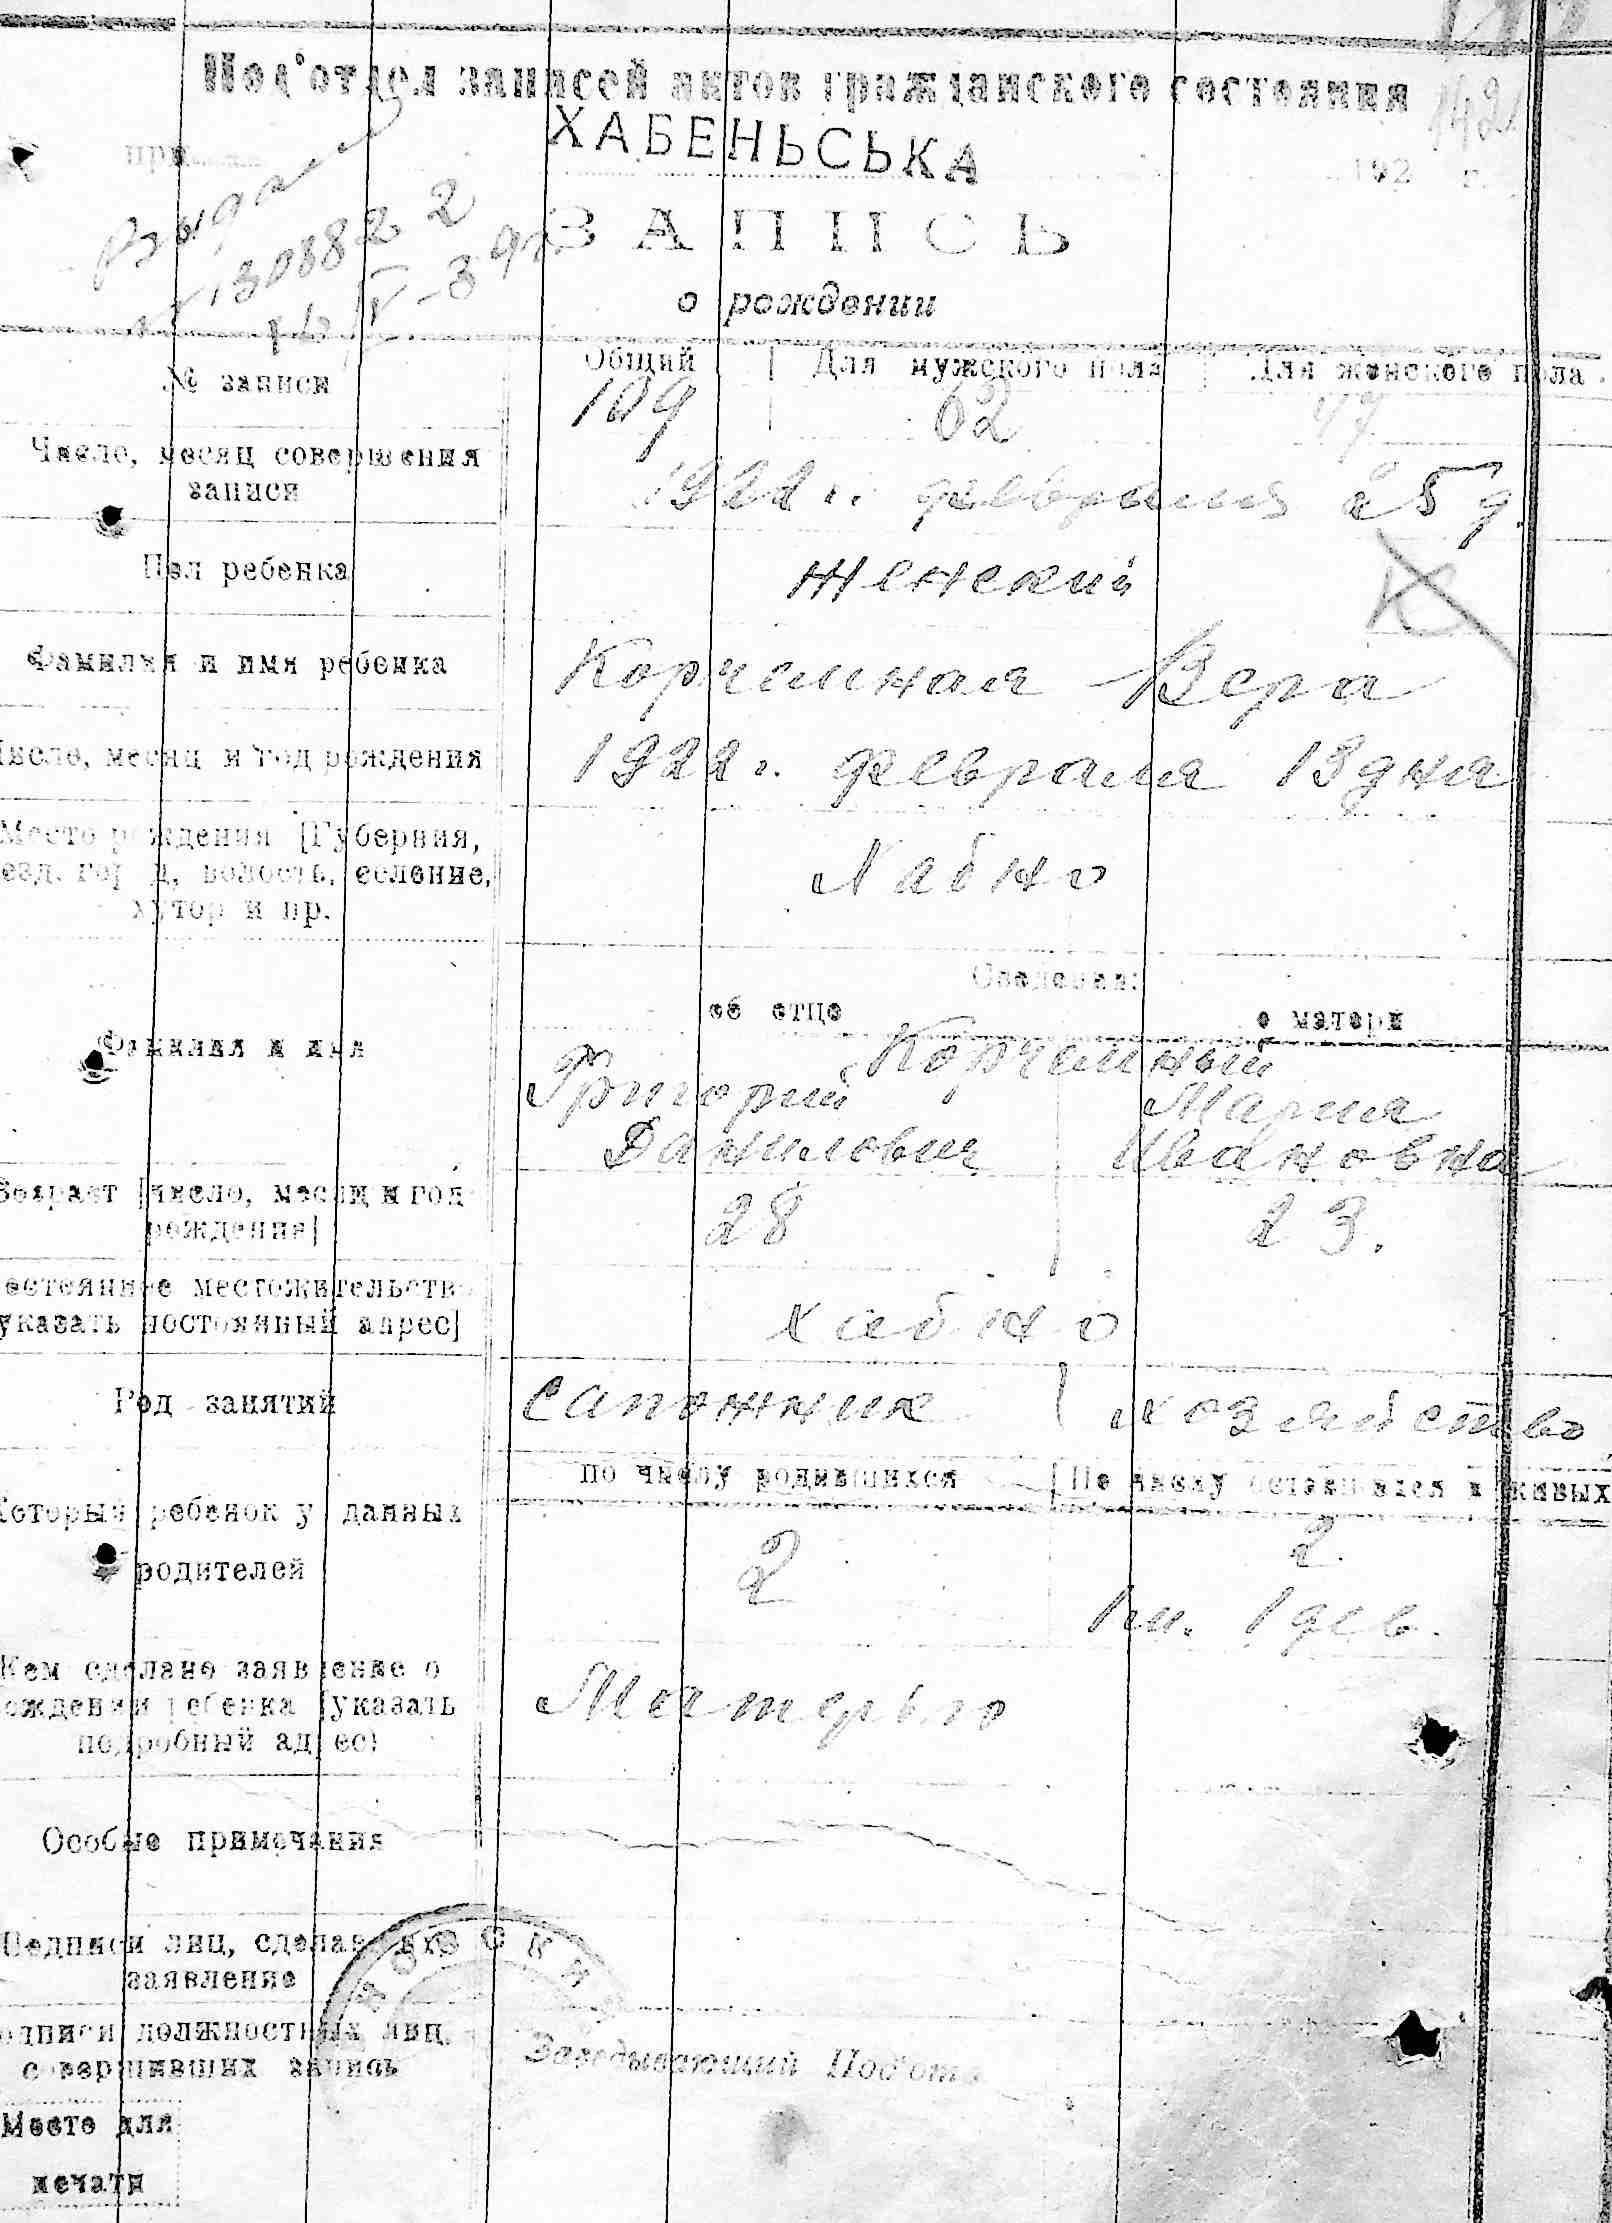 Под'отдел записей актов гражданского состояния
142
при
ХАБЕНЬСЬКА
192 г.
ЗАПИСЬ
о рождении
№ записи
Общий | Для мужского пола | Для женского пола
109 62 47
Число, месяц совершения
записи
1922 г. февраля 25 д.
Пол ребенка
женский
Фамилия и имя ребенка
Корчемная Вера
Число, месяц и год рождения
1922 г. февраля 13 дня
Место рождения [Губерния,
уезд, город, волость, селение,
хутор и пр.
Хабно
Сведения:
об отце о матери
Фамилия и имя
Корчемный
Григорий Мария
Данилович Ивановна
Возраст [число, месяц и год
рождения]
28 23.
Постоянное местожительство
указать постоянный адрес]
Хабно
Род занятий
сапожник хозяйство
по числу родившихся | По числу оставшихся в живых
Который ребенок у данных
родителей
2 2
1 м. 1 дев.
Кем сделано заявление о
рождении ребенка [указать
подробный адрес)
Матерью
Особые примечания
Подписи лиц, сделавших
заявление
Подписи должностных лиц,
совершивших запись
Заведывающий Под'отд
Место для
печати